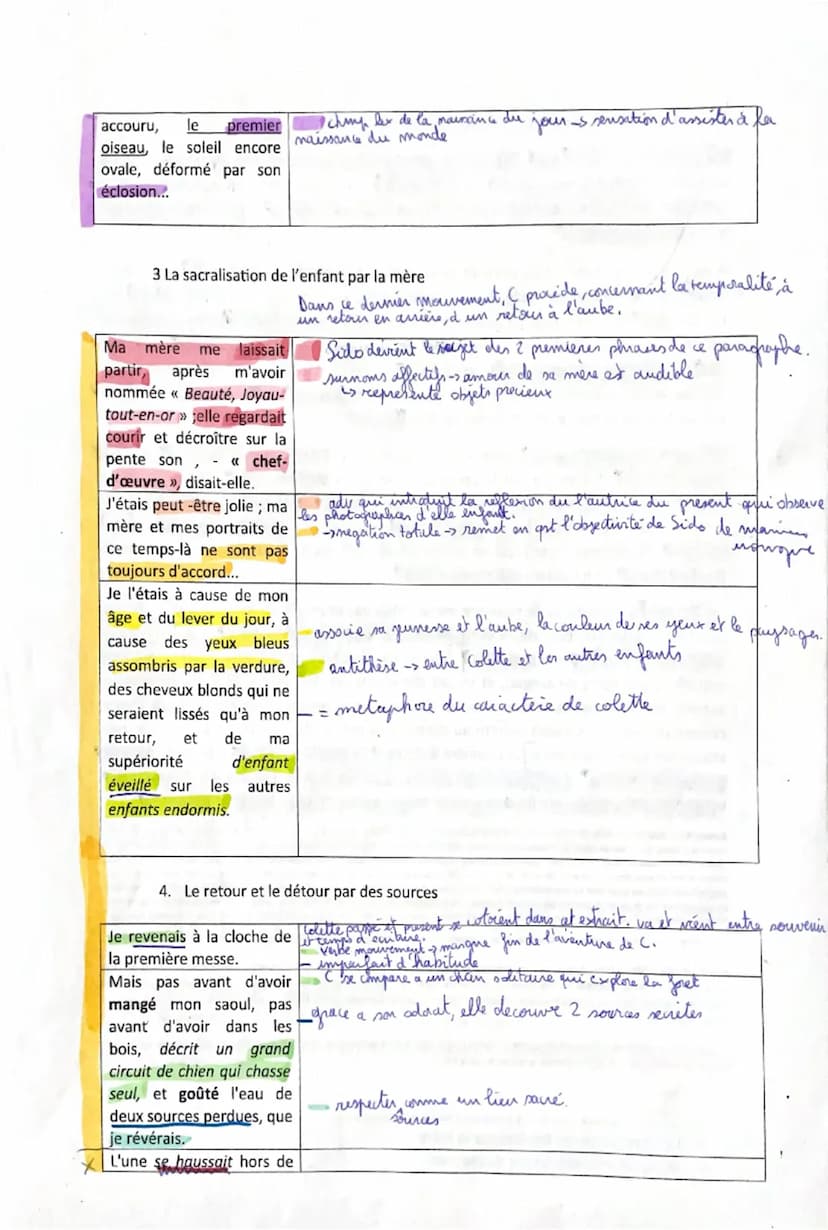 accouru, le premier
oiseau, le soleil encore
ovale, déformé par son
éclosion...
champ lex de la naissance du jour -> sensation d'assister à la
naissance du monde
3 La sacralisation de l'enfant par la mère
Dans ce dernier mouvement, C procède, concernant la temporalité, à
un retour en arrière, d un retour à l'aube.
Ma mère me laissait
partir, après m'avoir
nommée « Beauté, Joyau-
tout-en-or » ;elle regardait
courir et décroître sur la
pente son , - « chef-
d'œuvre », disait-elle.
Sido devient le sujet des 2 premieres phrases de ce paragraphe.
surnoms affectifs -> amour de sa mère est audible
↳ représente objets precieux
J'étais peut -être jolie ; ma
mère et mes portraits de
ce temps-là ne sont pas
toujours d'accord...
adv qui introduit la reflexion du l'autrice du present qui observe
les photographies d'elle enfant.
-> negation totale -> remet en qst l'objectivité de Sido de manière
ironique
Je l'étais à cause de mon
âge et du lever du jour, à
cause des yeux bleus
assombris par la verdure,
des cheveux blonds qui ne
seraient lissés qu'à mon
retour, et de ma
supériorité d'enfant
éveillé sur les autres
enfants endormis.
associe sa jeunesse et l'aube, la couleur de ses yeux et le paysages.
antithèse -> entre Colette et les autres enfants
= metaphore du caractère de colette
4. Le retour et le détour par des sources
Je revenais à la cloche de
la première messe.
Colette passé et present se cotoient dans cet extrait. va et vient entre souvenir
et temps d'ecriture.
verbe mouvement -> marque fin de l'aventure de C.
- imparfait d'habitude
Mais pas avant d'avoir
mangé mon saoul, pas
avant d'avoir dans les
bois, décrit un grand
circuit de chien qui chasse
seul, et goûté l'eau de
deux sources perdues, que
je révérais.
C se compare a un chien solitaire qui explore la foret
grace a son odorat, elle decouvre 2 sources secrètes
respecter sources comme un lieu sacré.
x L'une se haussait hors de